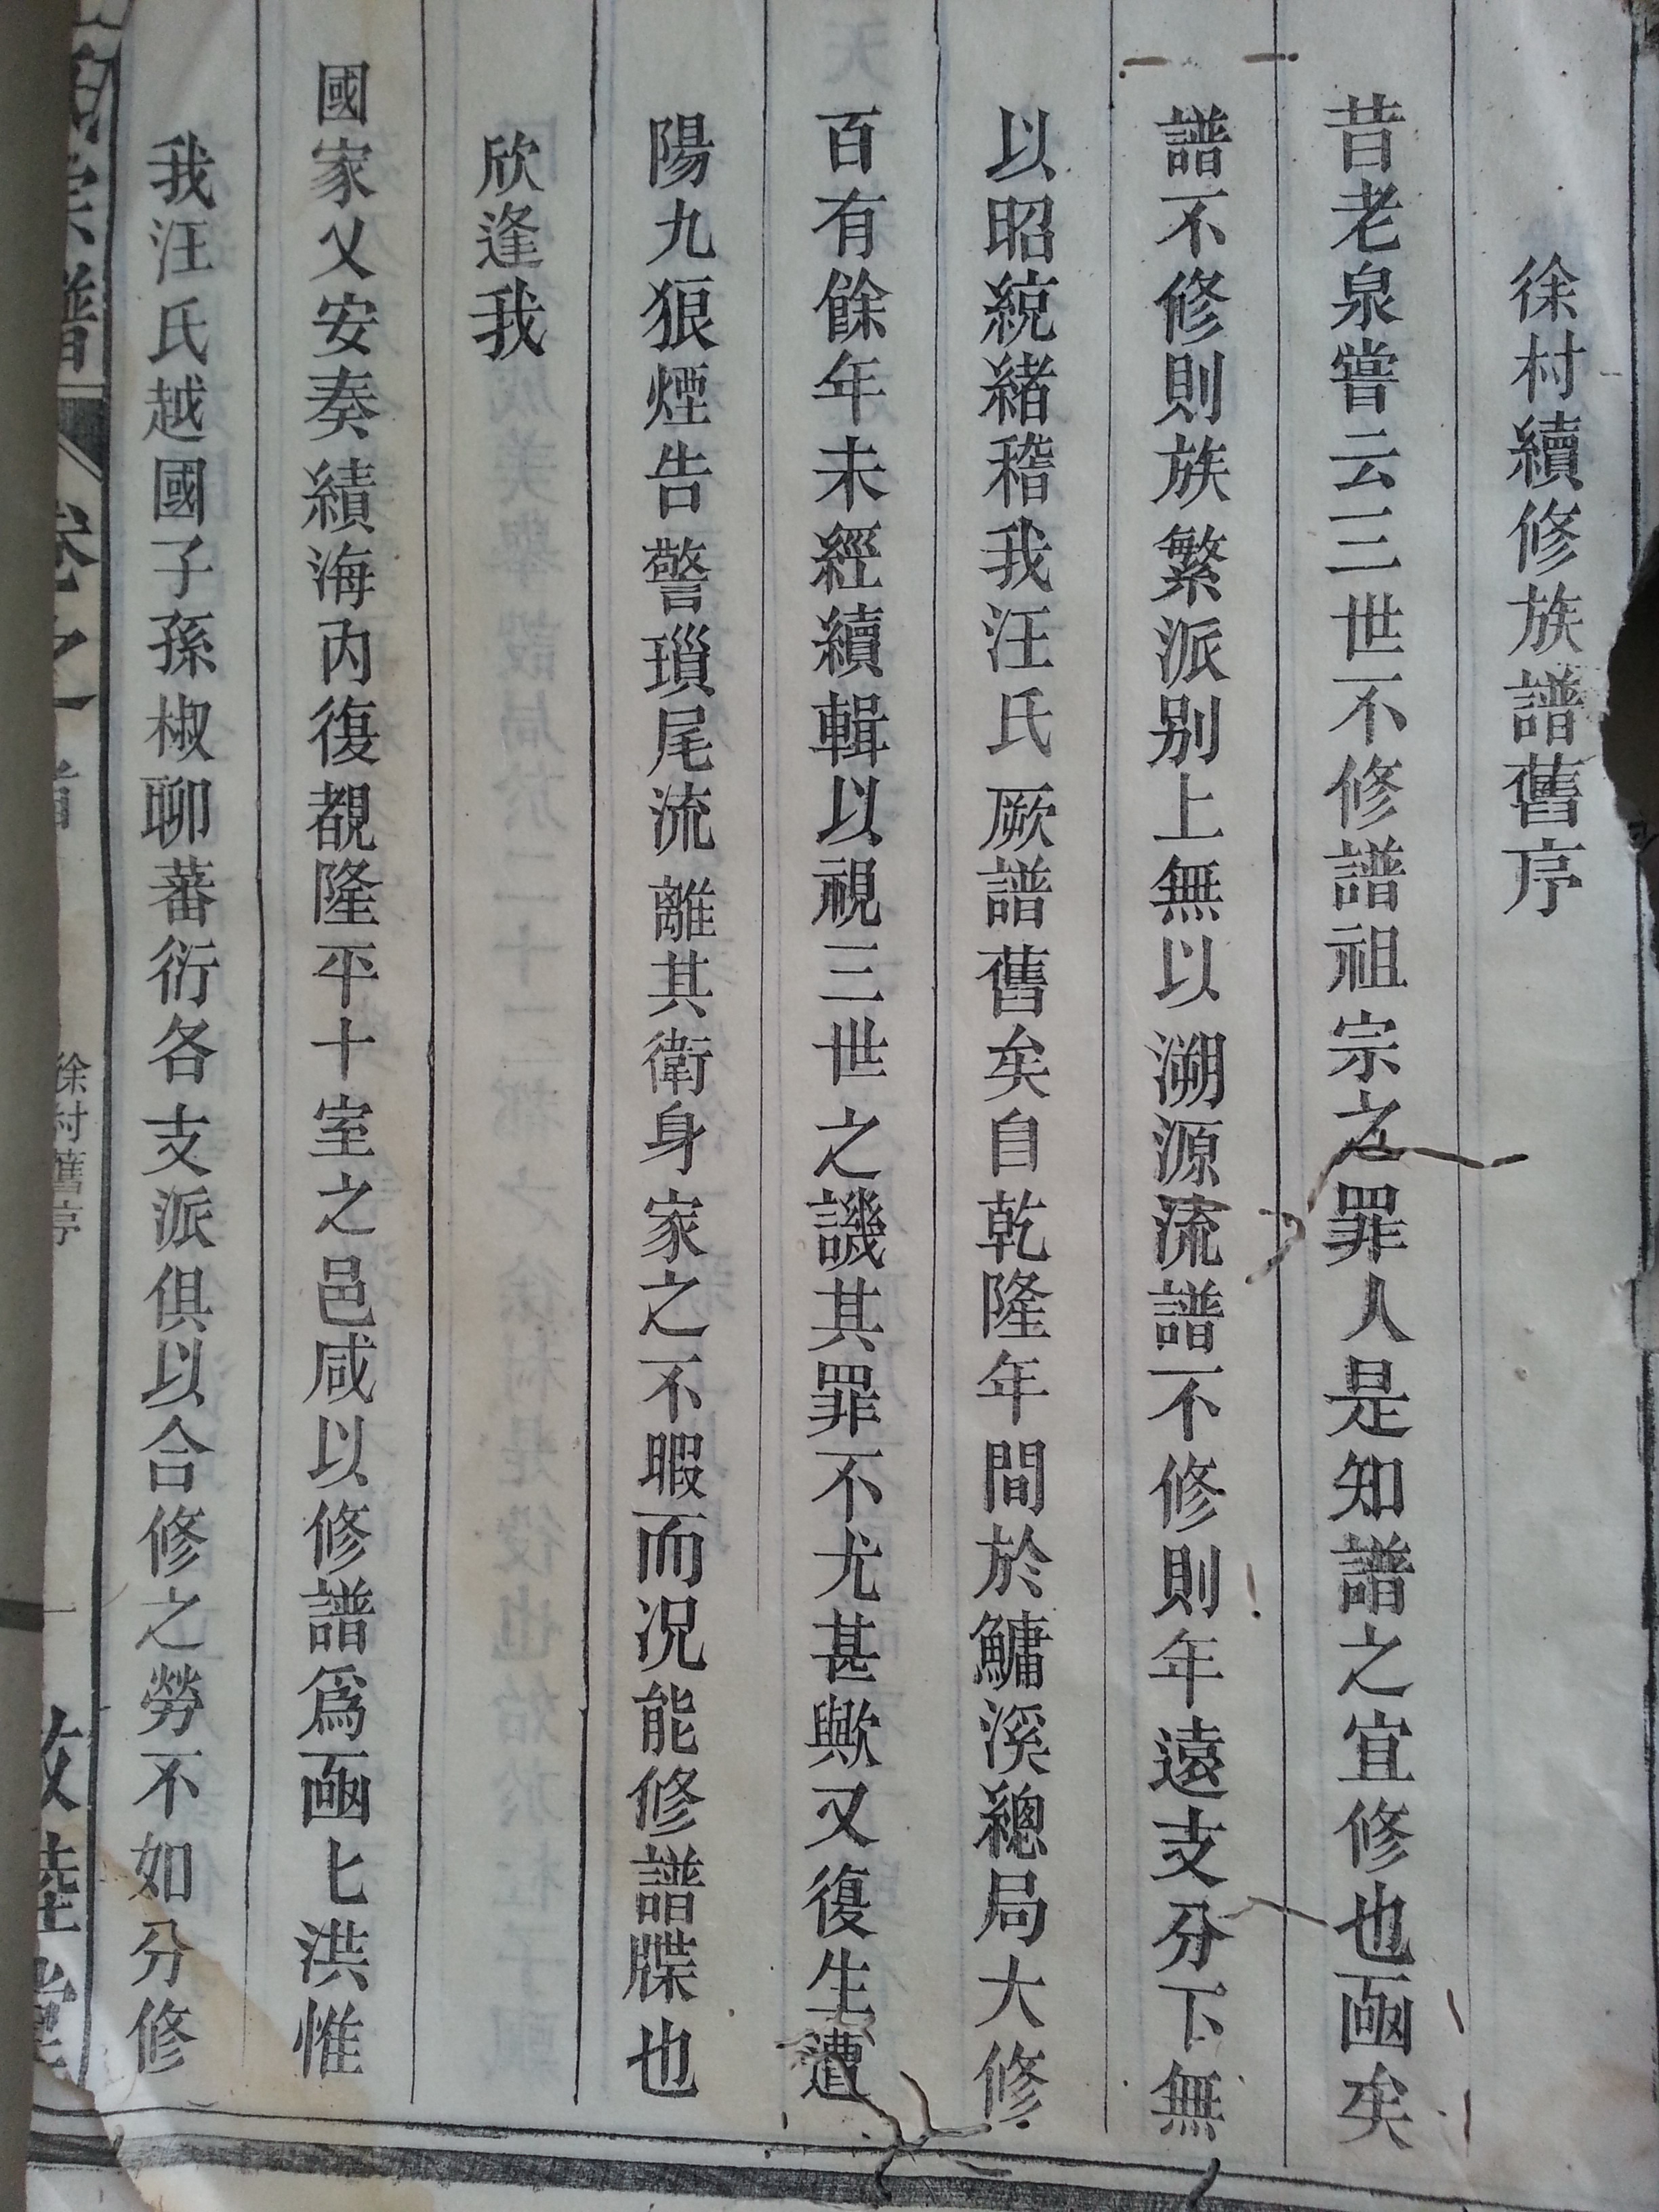 徐村續修族譜舊序
昔老泉嘗云三世不修譜祖宗之罪人是知譜之宜修也亟矣
譜不修則族繁派别上無以溯源流譜不修則年遠支分下無
以昭統緒稽我汪氏厥譜舊矣自乾隆年間於鱅溪總局大修
百有餘年未經續輯以視三世之譏其罪不尤甚歟又復生遭
陽九狼煙告警瑣尾流離其衛身家之不暇而况能修譜牒也
欣逢我
國家乂安奏績海内復覩隆平十室之邑咸以修譜爲亟匕洪惟
我汪氏越國子孫椒聊蕃衍各支派俱以合修之勞不如分修
宗譜
卷之首
徐村舊序
一
敦睦堂